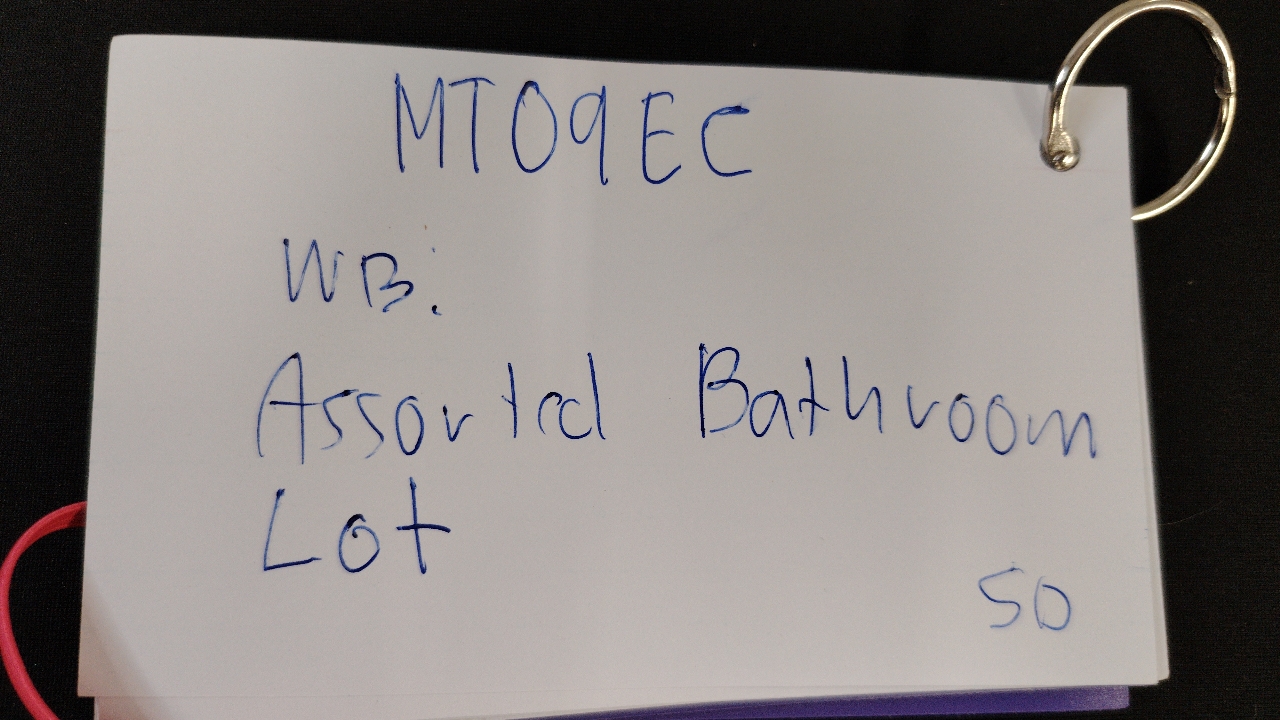 MT09EC
WB:
Assorted Bathroom
Lot
50